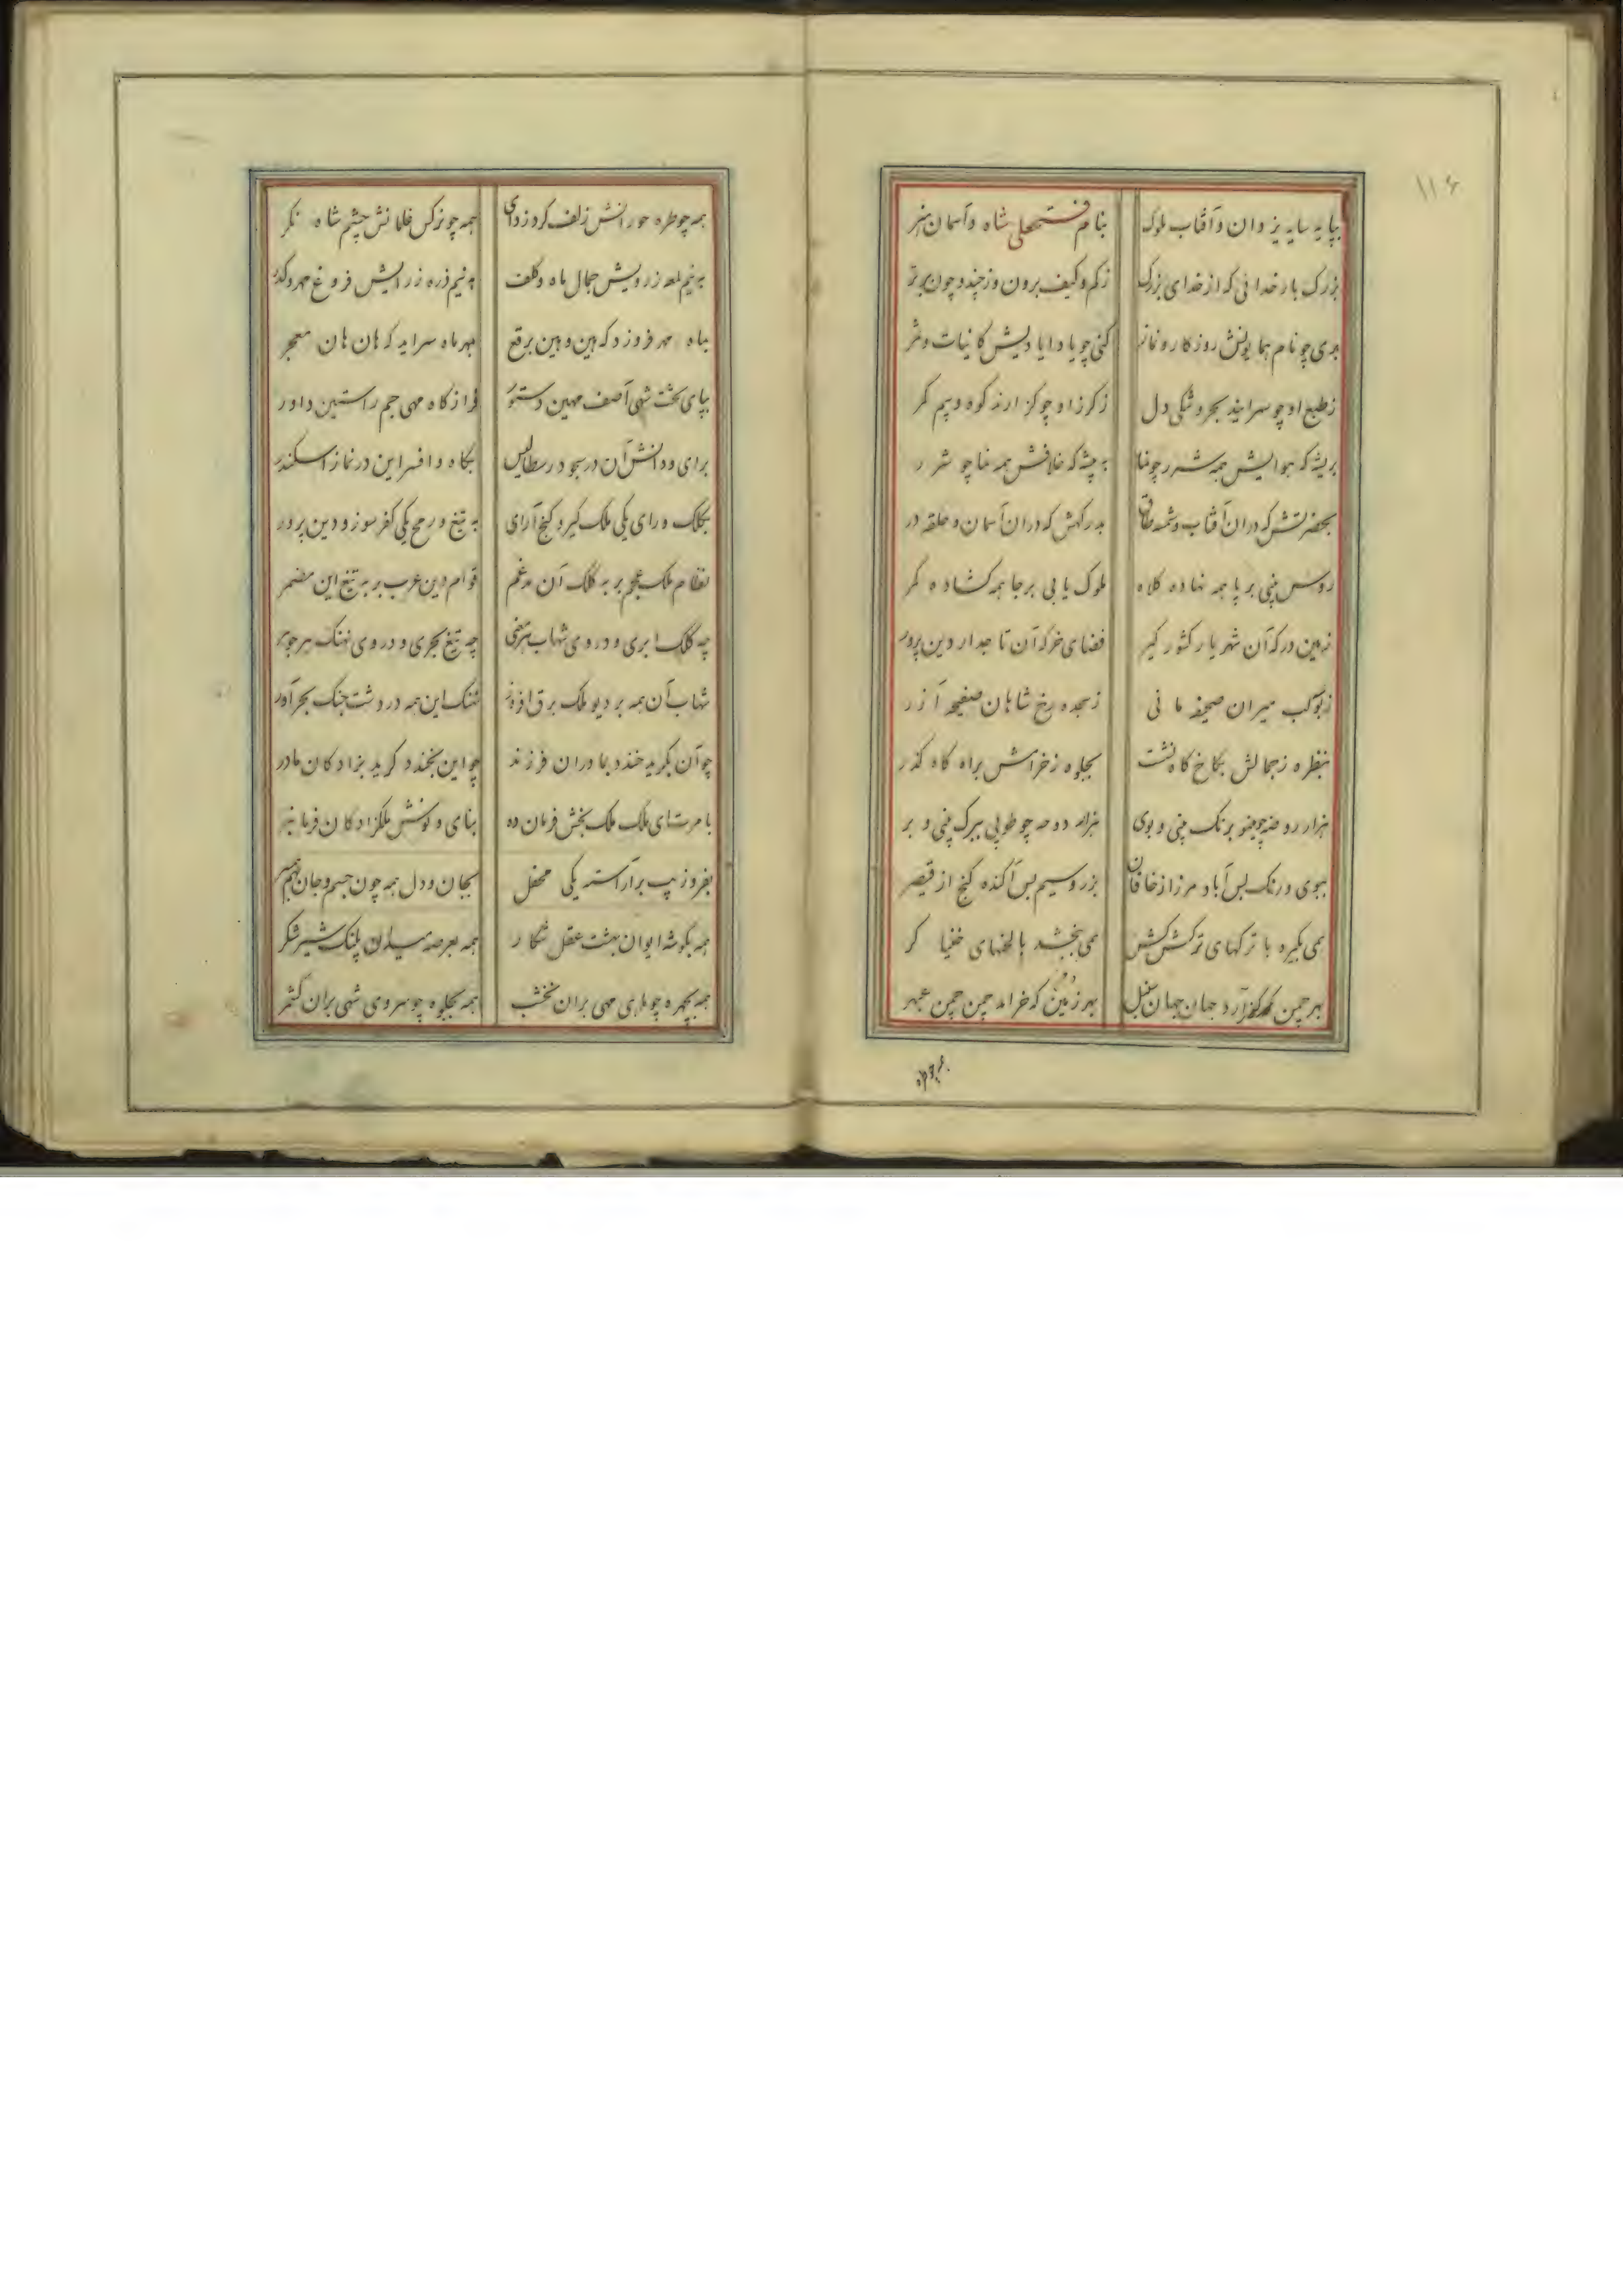 ۱۱۶
بپایه سایه یزدان و آفتاب ملوک بنام فتحعلی شاه و آسمان هنر
بزرک بار خدائی که از خدای بزرک زکم و کیف برون وز چند و چون برتر
بری چو نام همایونش روزکار و نماز کنی چو یاد ایادیش کاینات و
ز طبع او چو سرایند بحر و خشکی دل ز کرز او چو کزارند کوه و بیم کمر
بریشه که هوایش همه شرر چو به بیشه که خلافش همه چو شرر
بحضرتش که در آن آفتاب و شمسه طاق بدرکهش که در آن آسمان و حلقه در
روس بینی بر پا همه نهاده کلاه ملوک یابی برجا همه کشاده کمر
زمین درکه آن شهریار کشور کیر فضای خرکه آن تاجدار دین پرور
ز بوسه لب میران صحیفه مانی ز سجده رخ شاهان صفیحه آزر
بنظره ز جمالش بکاخ کاه نشست بجلوه ز خرامش براه کاه کذر
هزار روضه چو مینو برنک بینی و بوی هزار دوحه چو طوبی ببرک بینی و بر
ببوی و رنک بس آباد مرز از خاقان بزر و سیم بس آکنده کنج از قیصر
همی بکیرد با ترکهای ترکش کش همی ببخشد با لحنهای خنیاکر
بهر چمن که کذر آرد جهان جهان سنبل بهر زمین که خرامد چمن چمن عبهر
همه چو طره حورانش زلف کرد زدای همه چو نرکس غلمانش چشم شاه نکر
به نیم لمعه ز رویش جمال ماه و کلف به نیم ذره ز رایش فروغ مهر و کدر
بماه مهر فروزد که هین و هین برقع بمهر ماه سراید که هان هان معجر
بپای تخت شهی آصف مهین دستور فراز کاه مهی جم راستین داور
برای و دانش آن در سجود رسطالیس بکاه و افسر این در نماز اسکندر
بکلک و رای یکی ملک کیر و کنج آرای به تیغ و رمح یکی کفر سوز و دین پرور
نظام ملک عجم بر به کلک آن مدغم قوام دین عرب بر به تیغ این مضمر
چه کلک ابری و در وی شهاب چه تیغ بحری و در وی نهنک
شهاب آن همه بر دیو ملک برق افروز نهنک این همه در دشت جنک بحر آور
چو آن بکرید خندد بمادران فرزند چو این بخندد کرید بزادکان مادر
بامر تای ملک ملک بخش فرمان ده بنای و نوش ملکزادکان فرمانبر
بفر و زیب برآراسته یکی محفل بجان و دل همه چون جسم و جان بهم
همه بکوشه ایوان بهشت عقل شکار همه بعرصه میدان پلنک شیر شکر
همه بچهره چو ماهی مهی بران نخشب همه بجلوه چو سروی شهی بران کشمر